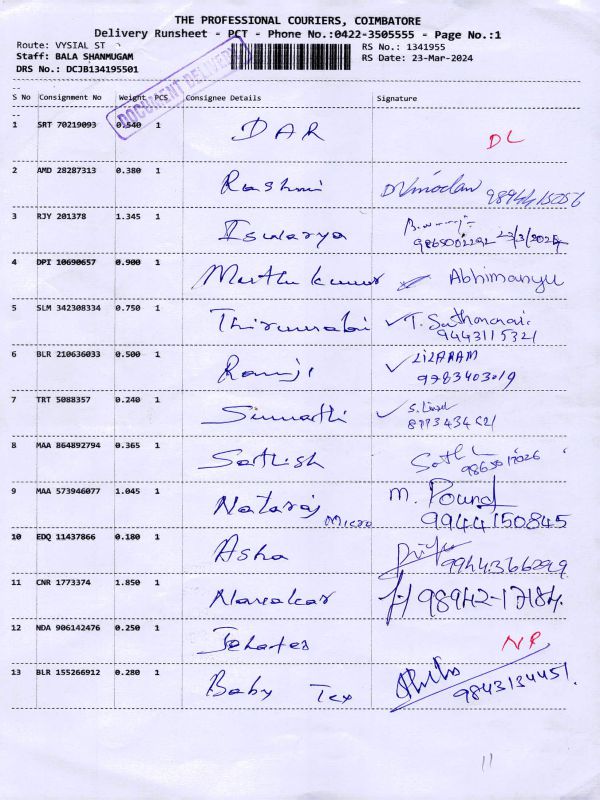 THE PROFESSIONAL COURIERS, COIMBATORE
Delivery Runsheet - PCT - Phone No.:0422-3505555 - Page No.:1
Route: VYSIAL ST
RS No.: 1341955
Staff: BALA SHANMUGAM
RS Date: 23-Mar-2024
DRS No.: DCJB134195501
DOCUMENT DELIVERY
S No Consignment No Weight PCS Consignee Details Signature
1 SRT 70219093 0.540 1 DAR DL
2 AMD 28287313 0.380 1 Rashmi
3 RJY 201378 1.345 1 Iswarya
23/3/2024
4 DPI 10690657 0.900 1 Muthu kumar Abhimanyu
5 SLM 342308334 0.750 1
9443115321
6 BLR 210636033 0.500 1 Ramji LILARAM
9783403019
7 TRT 5088357 0.240 1
8 MAA 864892794 0.365 1 Sathish
9 MAA 573946077 1.045 1 Nataraj Micro M.
9944150845
10 EDQ 11437866 0.180 1 Asha
11 CNR 1773374 1.850 1 98942-17184.
12 NDA 906142476 0.250 1
13 BLR 155266912 0.280 1 Baby Tex 9843134451.
11